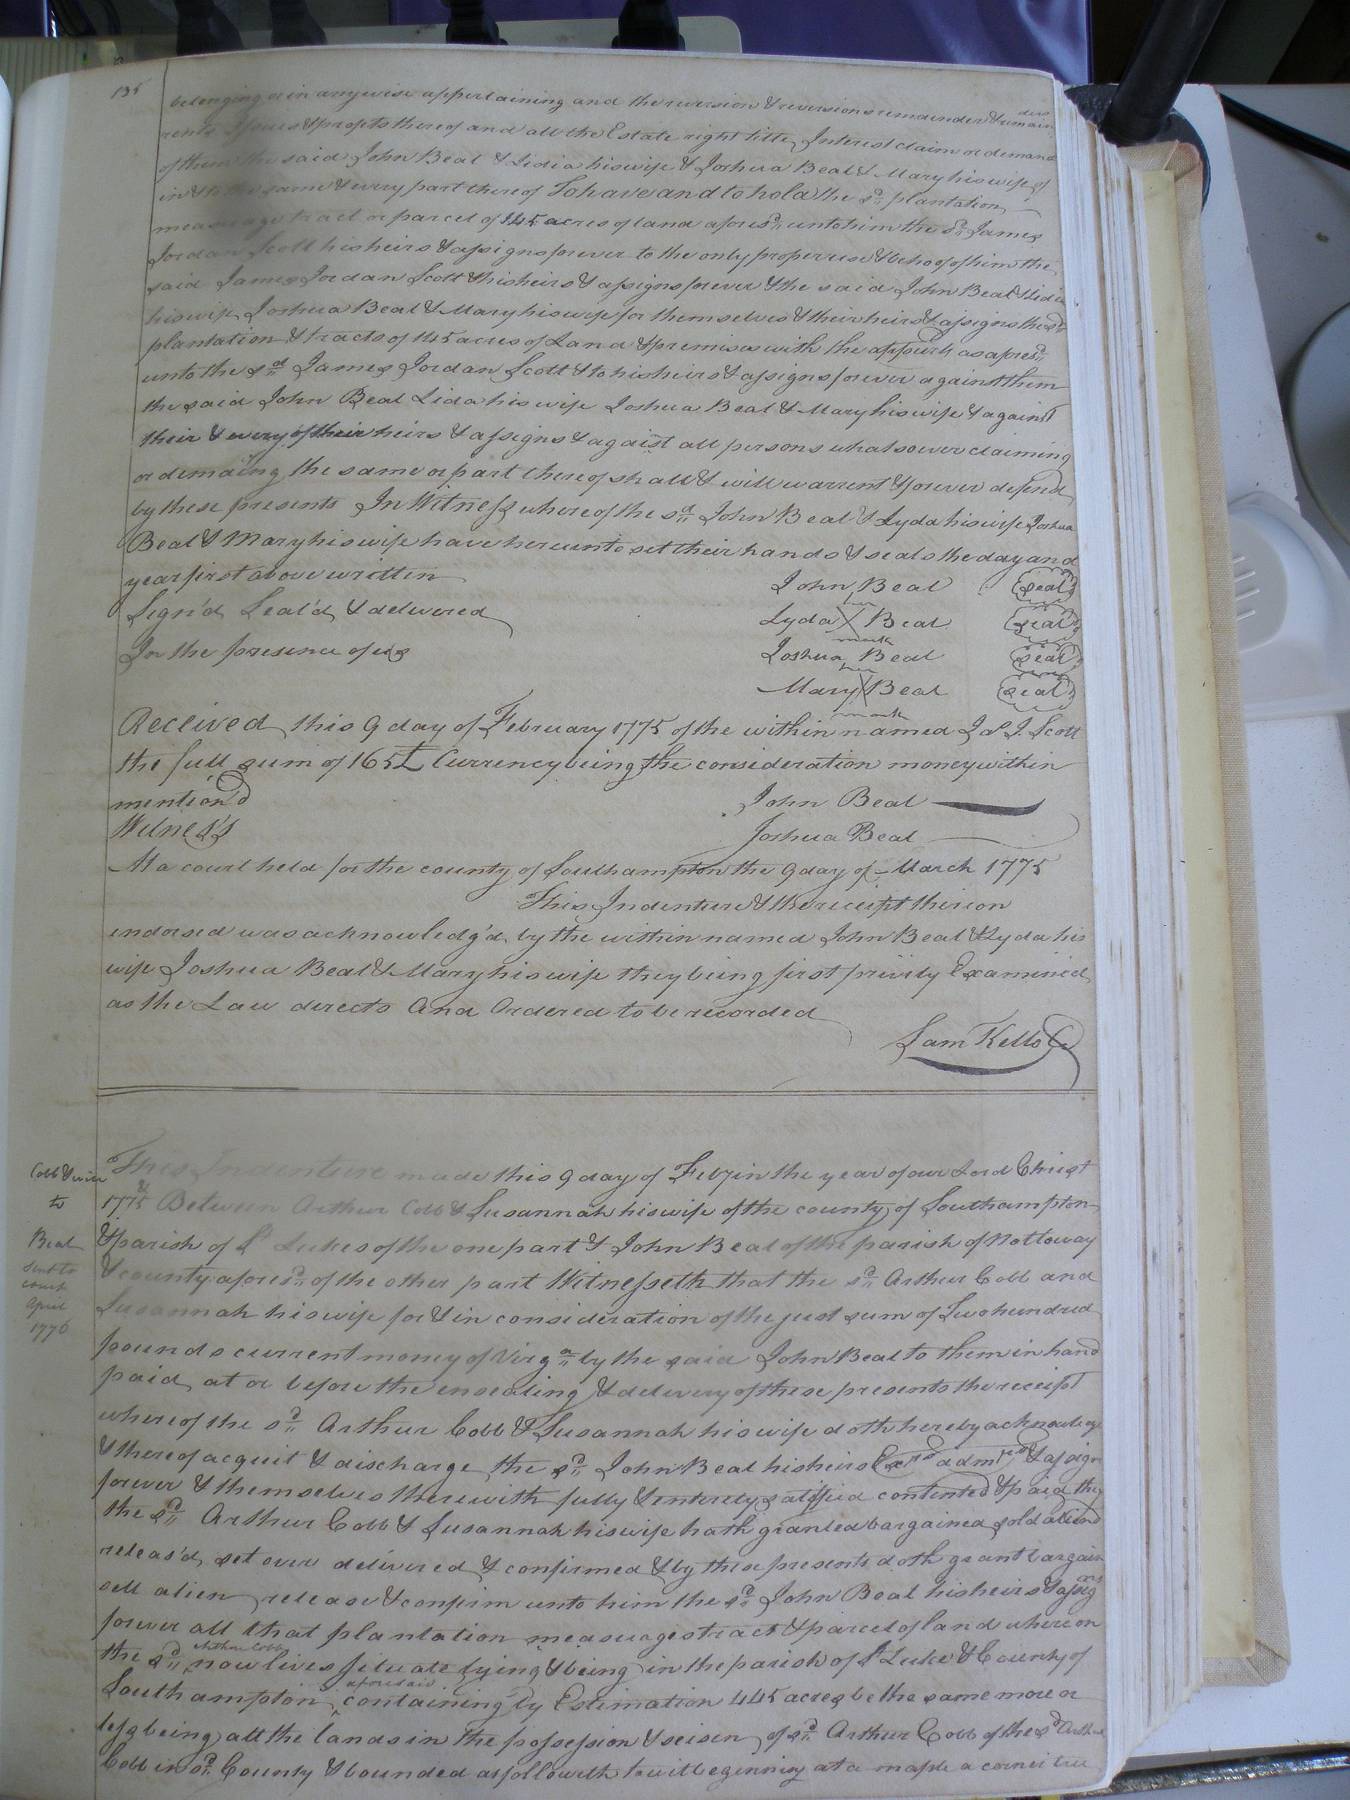 135
belonging or in anywise appertaining and the reversion & reversions remainder & remain
ders
rents Issues & profits thereof and all the Estate right title, Interest claim or demand
of them the said John Beal & Lidia his wife & Joshua Beal & Mary his wife of
in & to the same & every part thereof To have and to hold the sd plantation
measuage tract or parcel of 145 acres of land aforesd unto him the sd James
Jordan Scott his heirs & assigns forever to the only proper use & behoof of him the
said James Jordan Scott & his heirs & assigns forever & the said John Beal & Lidia
his wife, Joshua Beal & Mary his wife for themselves & their heirs & assigns the sd
plantation & tracts of 145 acres of Land & premises with the appurts as aforesd
unto the sd James Jordan Scott & to his heirs & assigns forever against them
the said John Beal Lida his wife Joshua Beal & Mary his wife & against
their & every of their heirs & assigns & agaist all persons whatsoever claiming
or demaing the same or part thereof shall & will warrent & forever defend
by these presents In Witness whereof the sd John Beal & Lyda his wife Joshua
Beal & Mary his wife have hereunto set their hands & seals the day and
year first above written
John Beal seal
Sign'd Seal'd & delivered
her
Lyda X Beal seal
mark
In the presence of us
Joshua Beal seal
her
Mary X Beal seal
mark
Received this 9 day of February 1775 of the within named J. J. Scott
the full sum of 165£ Currency being the consideration money within
mention'd
John Beal
Witness's
Joshua Beal
At a court held for the county of Southampton the 9 day of March 1775
This Indenture & the receipt thereon
endorsed was acknowledg'd by the within named John Beal & Lyda his
wife Joshua Beal & Mary his wife they being first privily Examined
as the Law directs And Ordered to be recorded
Sam Kello C
Cobb & wife
to
Beal
Sent to
court
April
1776
This Indenture made this 9 day of Feby in the year of our Lord Christ
1775 Between Arthur Cobb & Susannah his wife of the county of Southampton
& parish of St Lukes of the one part & John Beal of the parish of Nottoway
& county aforesd of the other part Witnesseth that the sd Arthur Cobb and
Susannah his wife for & in consideration of the just sum of Two hundred
pounds current money of Virga by the said John Beal to them in hand
paid, at or before the ensealing & delivery of these presents the receipt
whereof the sd Arthur Cobb & Susannah his wife doth hereby acknowledge
& thereof acquit & discharge the sd John Beal his heirs Exrs admrs & assigns
forever & themselves therewith fully & entirely satisfied contented & paid they
the sd Arthur Cobb & Susannah his wife hath granted bargained sold aliend
releas'd, set over delivered & confirmed & by these presents doth grant bargain
sell alien, release & confirm unto him the sd John Beal his heirs & assigns
forever all that plantation measuages tract & parcel of land whereon
the sd Arthur Cobb now lives situate lying & being in the parish of St Luke & County of
Southampton aforesaid containing by Estimation 445 acres be the same more or
less being all the lands in the possession & seisen of sd Arthur Cobb of the sd Arthur
Cobb in sd County & bounded as followeth to wit beginning at a maple a corner tree